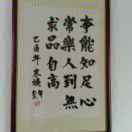 事能知足心
常樂人到無
求品自高
乙酉年